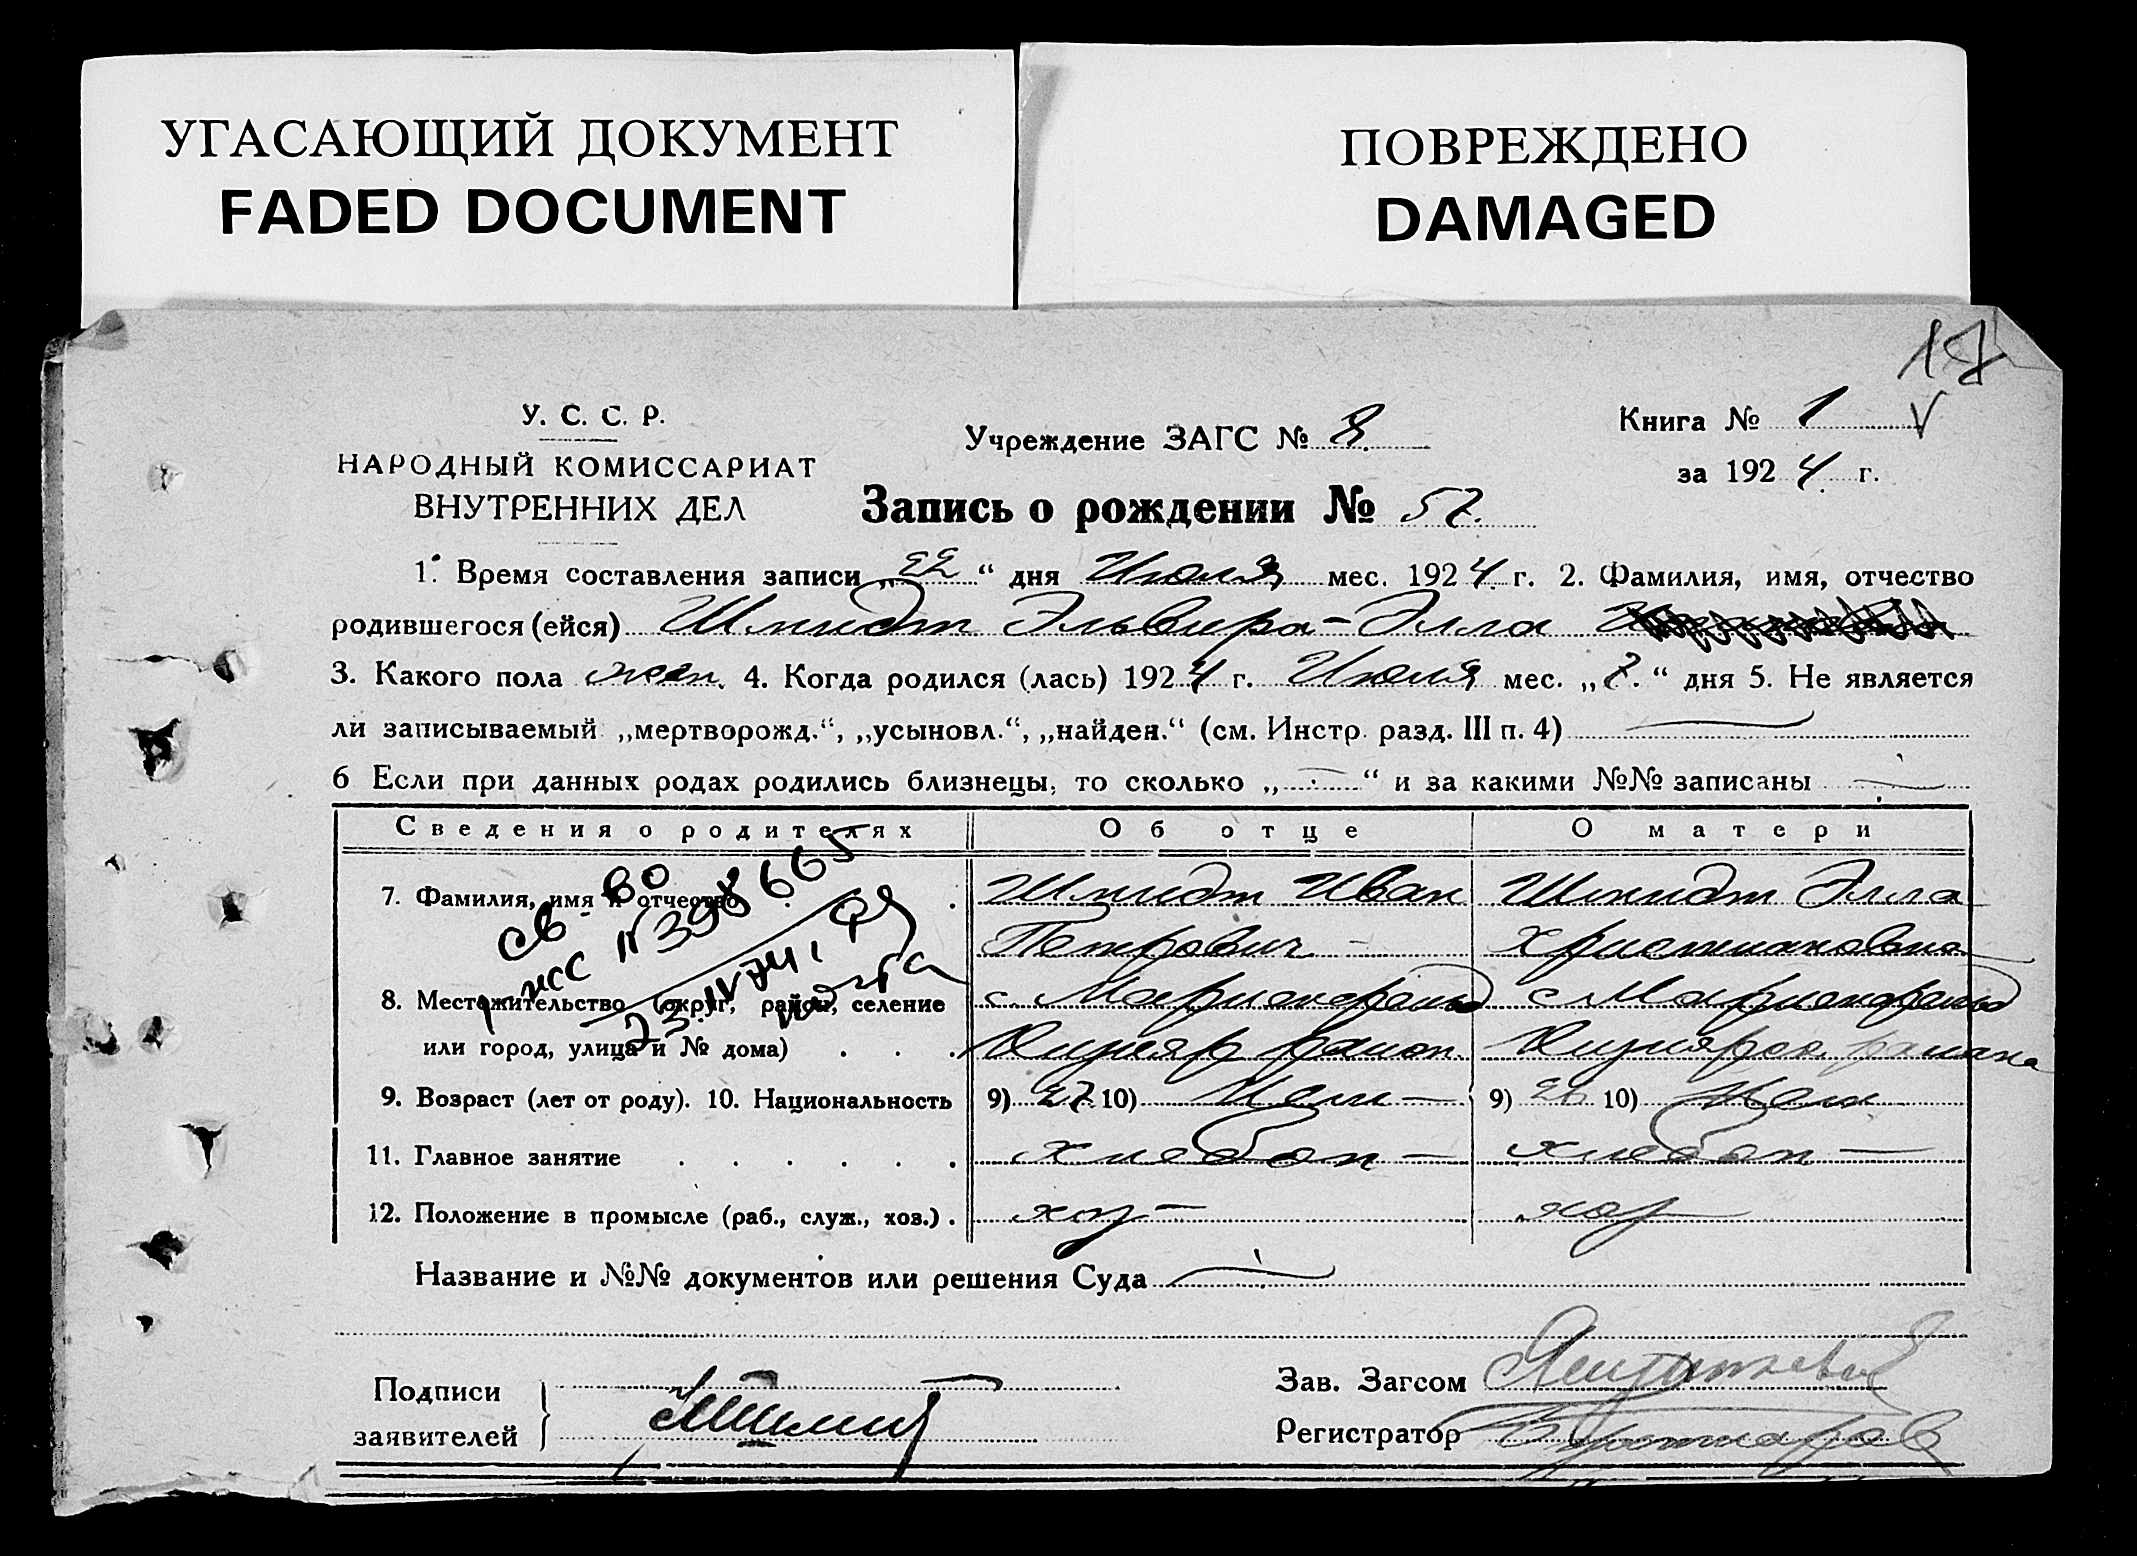 УГАСАЮЩИЙ ДОКУМЕНТ
FADED DOCUMENT
ПОВРЕЖДЕНО
DAMAGED
17
У. С. С. Р.
НАРОДНЫЙ КОМИССАРИАТ
ВНУТРЕННИХ ДЕЛ
Учреждение ЗАГС № 8
Книга № 1
за 1924 г.
Запись о рождении № 57.
1. Время составления записи „22“ дня Июля мес. 1924 г. 2. Фамилия, имя, отчество
родившегося (ейся) Шмидт Эльвира-Элла
3. Какого пола жен. 4. Когда родился (лась) 1924 г. Июля мес. „7.“ дня 5. Не является
ли записываемый „мертворожд.“, „усыновл.“, „найден.“ (см. Инстр. разд. III п. 4)
6 Если при данных родах родились близнецы, то сколько „-“ и за какими №№ записаны
Сведения о родителях Об отце О матери
7. Фамилия, имя и отчество Шмидт Иван Шмидт Элла
Петрович Христиановна
8. Местожительство (округ, район, селение с. с
или город, улица и № дома) район. района
9. Возраст (лет от роду). 10. Национальность 9) 27 10) Нем 9) 26 10) Нем
11. Главное занятие хлебоп хлебоп
12. Положение в промысле (раб., служ., хоз.) хоз хоз
св-во
№ 398665
Название и №№ документов или решения Суда
Подписи
заявителей
Зав. Загсом
Регистратор